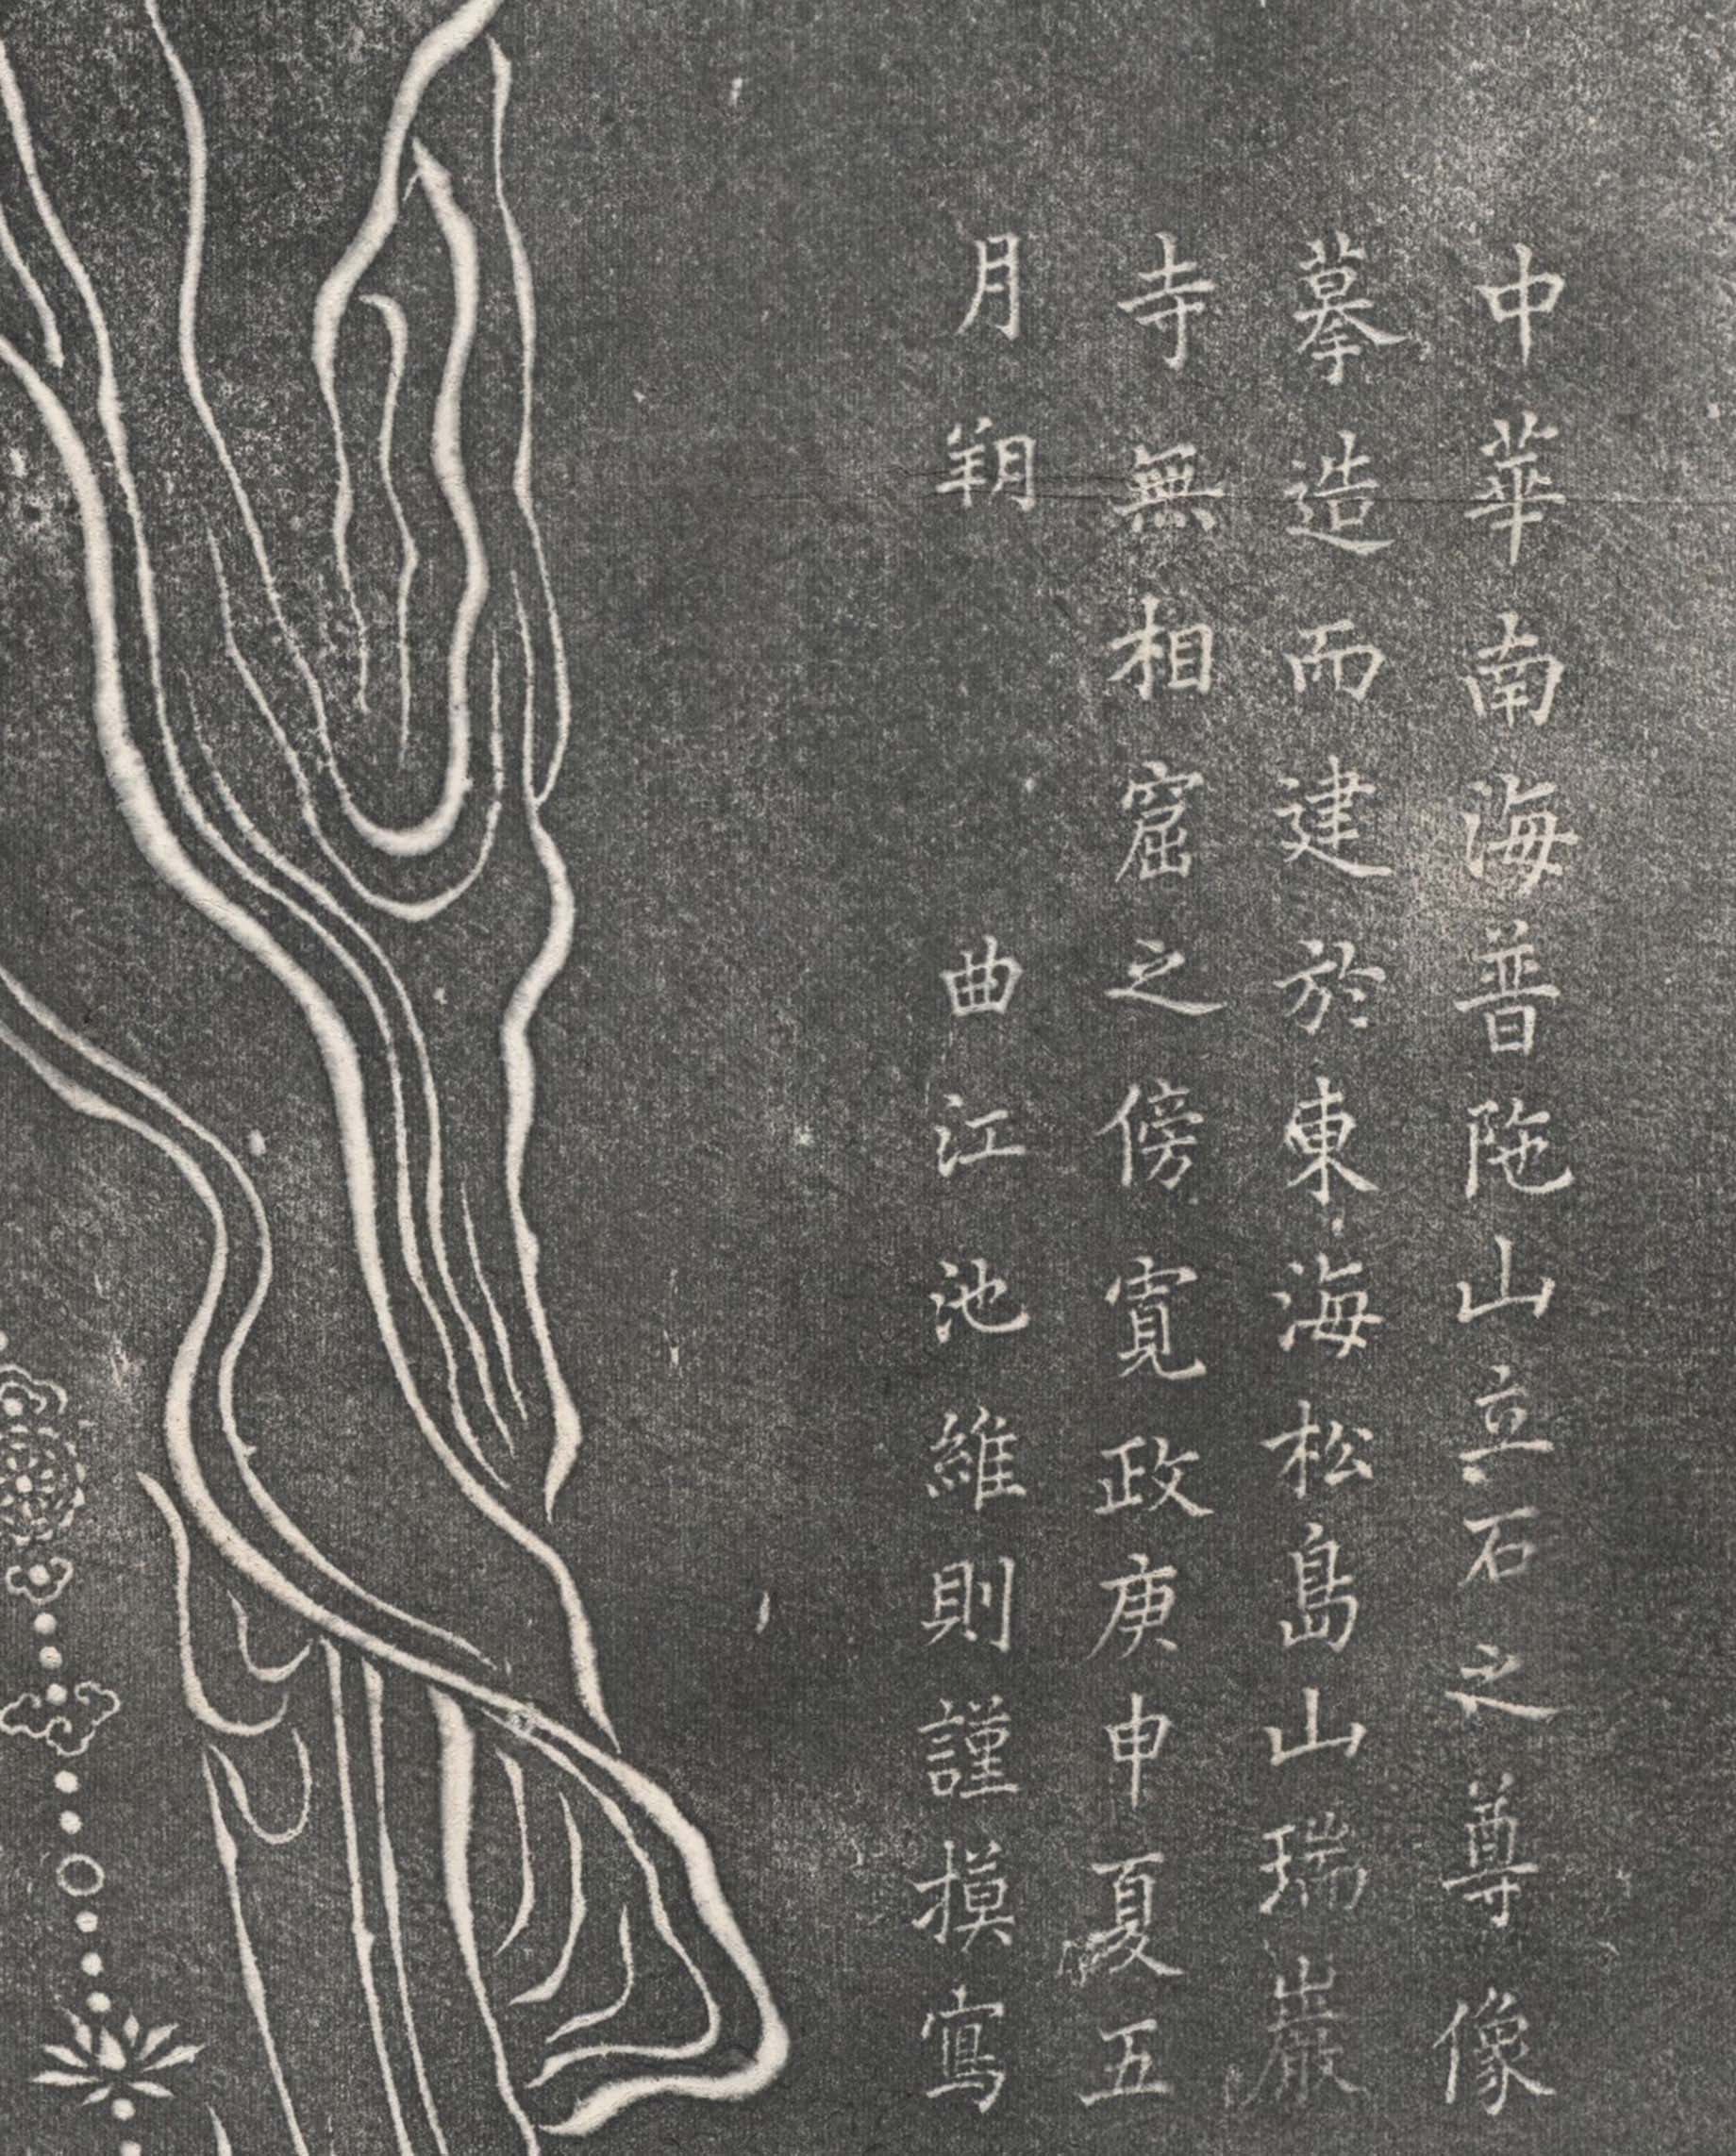 中華南海普陁山立石之尊像
摹造而建於東海松島山瑞巖
寺無相窟之傍寛政庚申夏五
月朔　曲江池維則謹摸寫